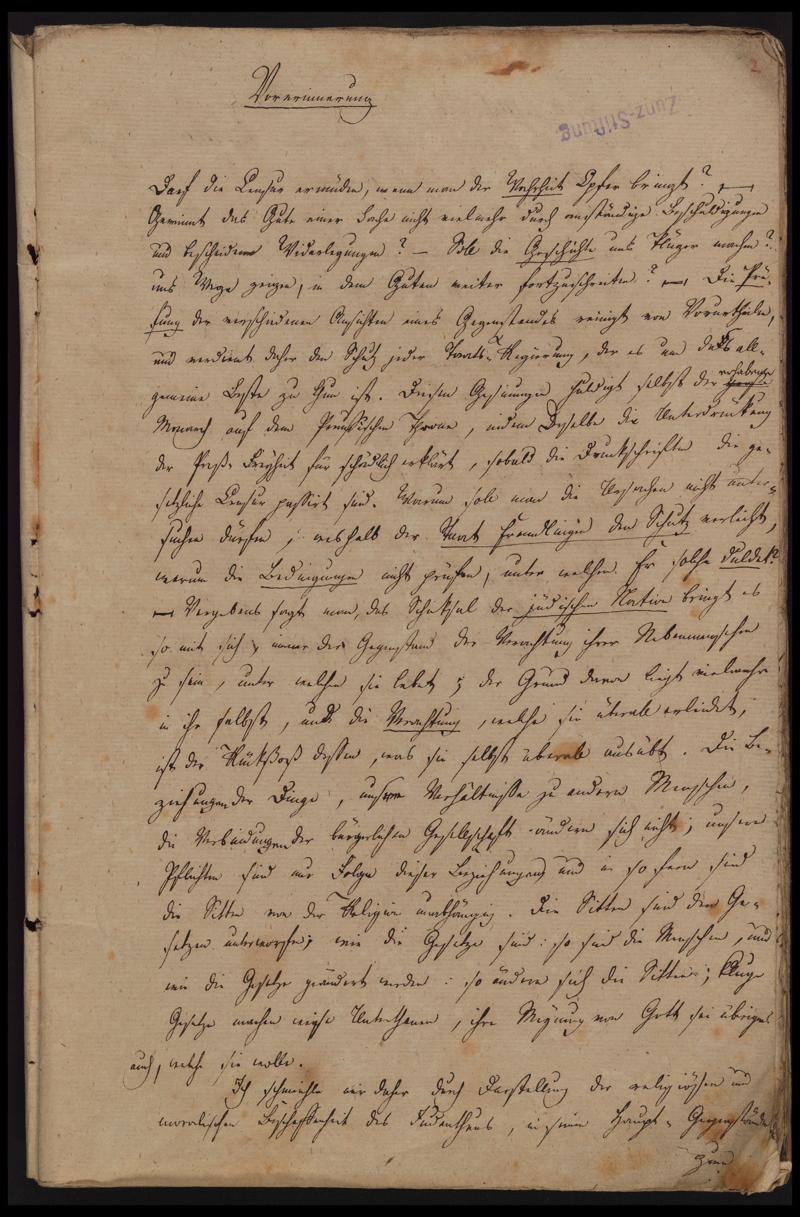 2
Zunz-Stiftung
Vorerinnerung
Darf die Censur ermüden, wenn man der Wahrheit Opfer bringt? —
Gewinnt das Gute einer Sache nicht vielmehr durch anständige Beschuldigungen
und bescheidene Widerlegungen? — Soll die Geschichte uns klüger machen?
uns Wege zeigen, in dem Guten weiter fortzuschreiten? — Die Prü-
fung der verschiedenen Ansichten eines Gegenstandes reinigt von Vorurtheilen,
und verdient daher den Schutz jeder Staats-Regierung, der es um das all-
gemeine Beste zu thun ist. Diesen Gesinnungen huldigt selbst der
Monarch auf dem Preußischen Throne, indem Derselbe die Unterdrückung
der Preß-Freyheit für schädlich erklärt, sobald die Druckschriften die ge-
setzliche Censur passirt sind. Warum soll man die Ursachen nicht unter-
suchen dürfen, weshalb der Staat Fremdlingen den Schutz verleiht,
warum die Bedingungen nicht prüfen, unter welchen Er solche duldet?
— Vergebens sagt man, das Schicksal der jüdischen Nation bringt es
so mit sich, immer der Gegenstand der Verachtung ihrer Nebenmenschen
zu sein, unter welchen sie lebet; der Grund davon liegt vielmehr
in ihr selbst, und die Verachtung, welche sie überall erleidet,
ist der Rückstoß dessen, was sie selbst überall ausübt. Die Be-
ziehungen der Dinge, unsere Verhältnisse zu andern Menschen,
die Verbindungen der bürgerlichen Gesellschaft ändern sich nicht; unsere
Pflichten sind nur Folgen dieser Beziehungen und in so fern sind
die Sitten von der Religion unabhängig. Die Sitten sind den Ge-
setzen unterworfen; wie die Gesetze sind: so sind die Menschen, und
wie die Gesetze geändert werden: so ändern sich die Sitten; kluge
Gesetze machen Unterthanen, ihre Meynung von Gott sei übrigens
auch, welche sie wolle.
Ich schmeichle mir daher durch Darstellung der religiösen und
moralischen Beschaffenheit des Judenthums, in seinen Haupt-Gegenständen
zum